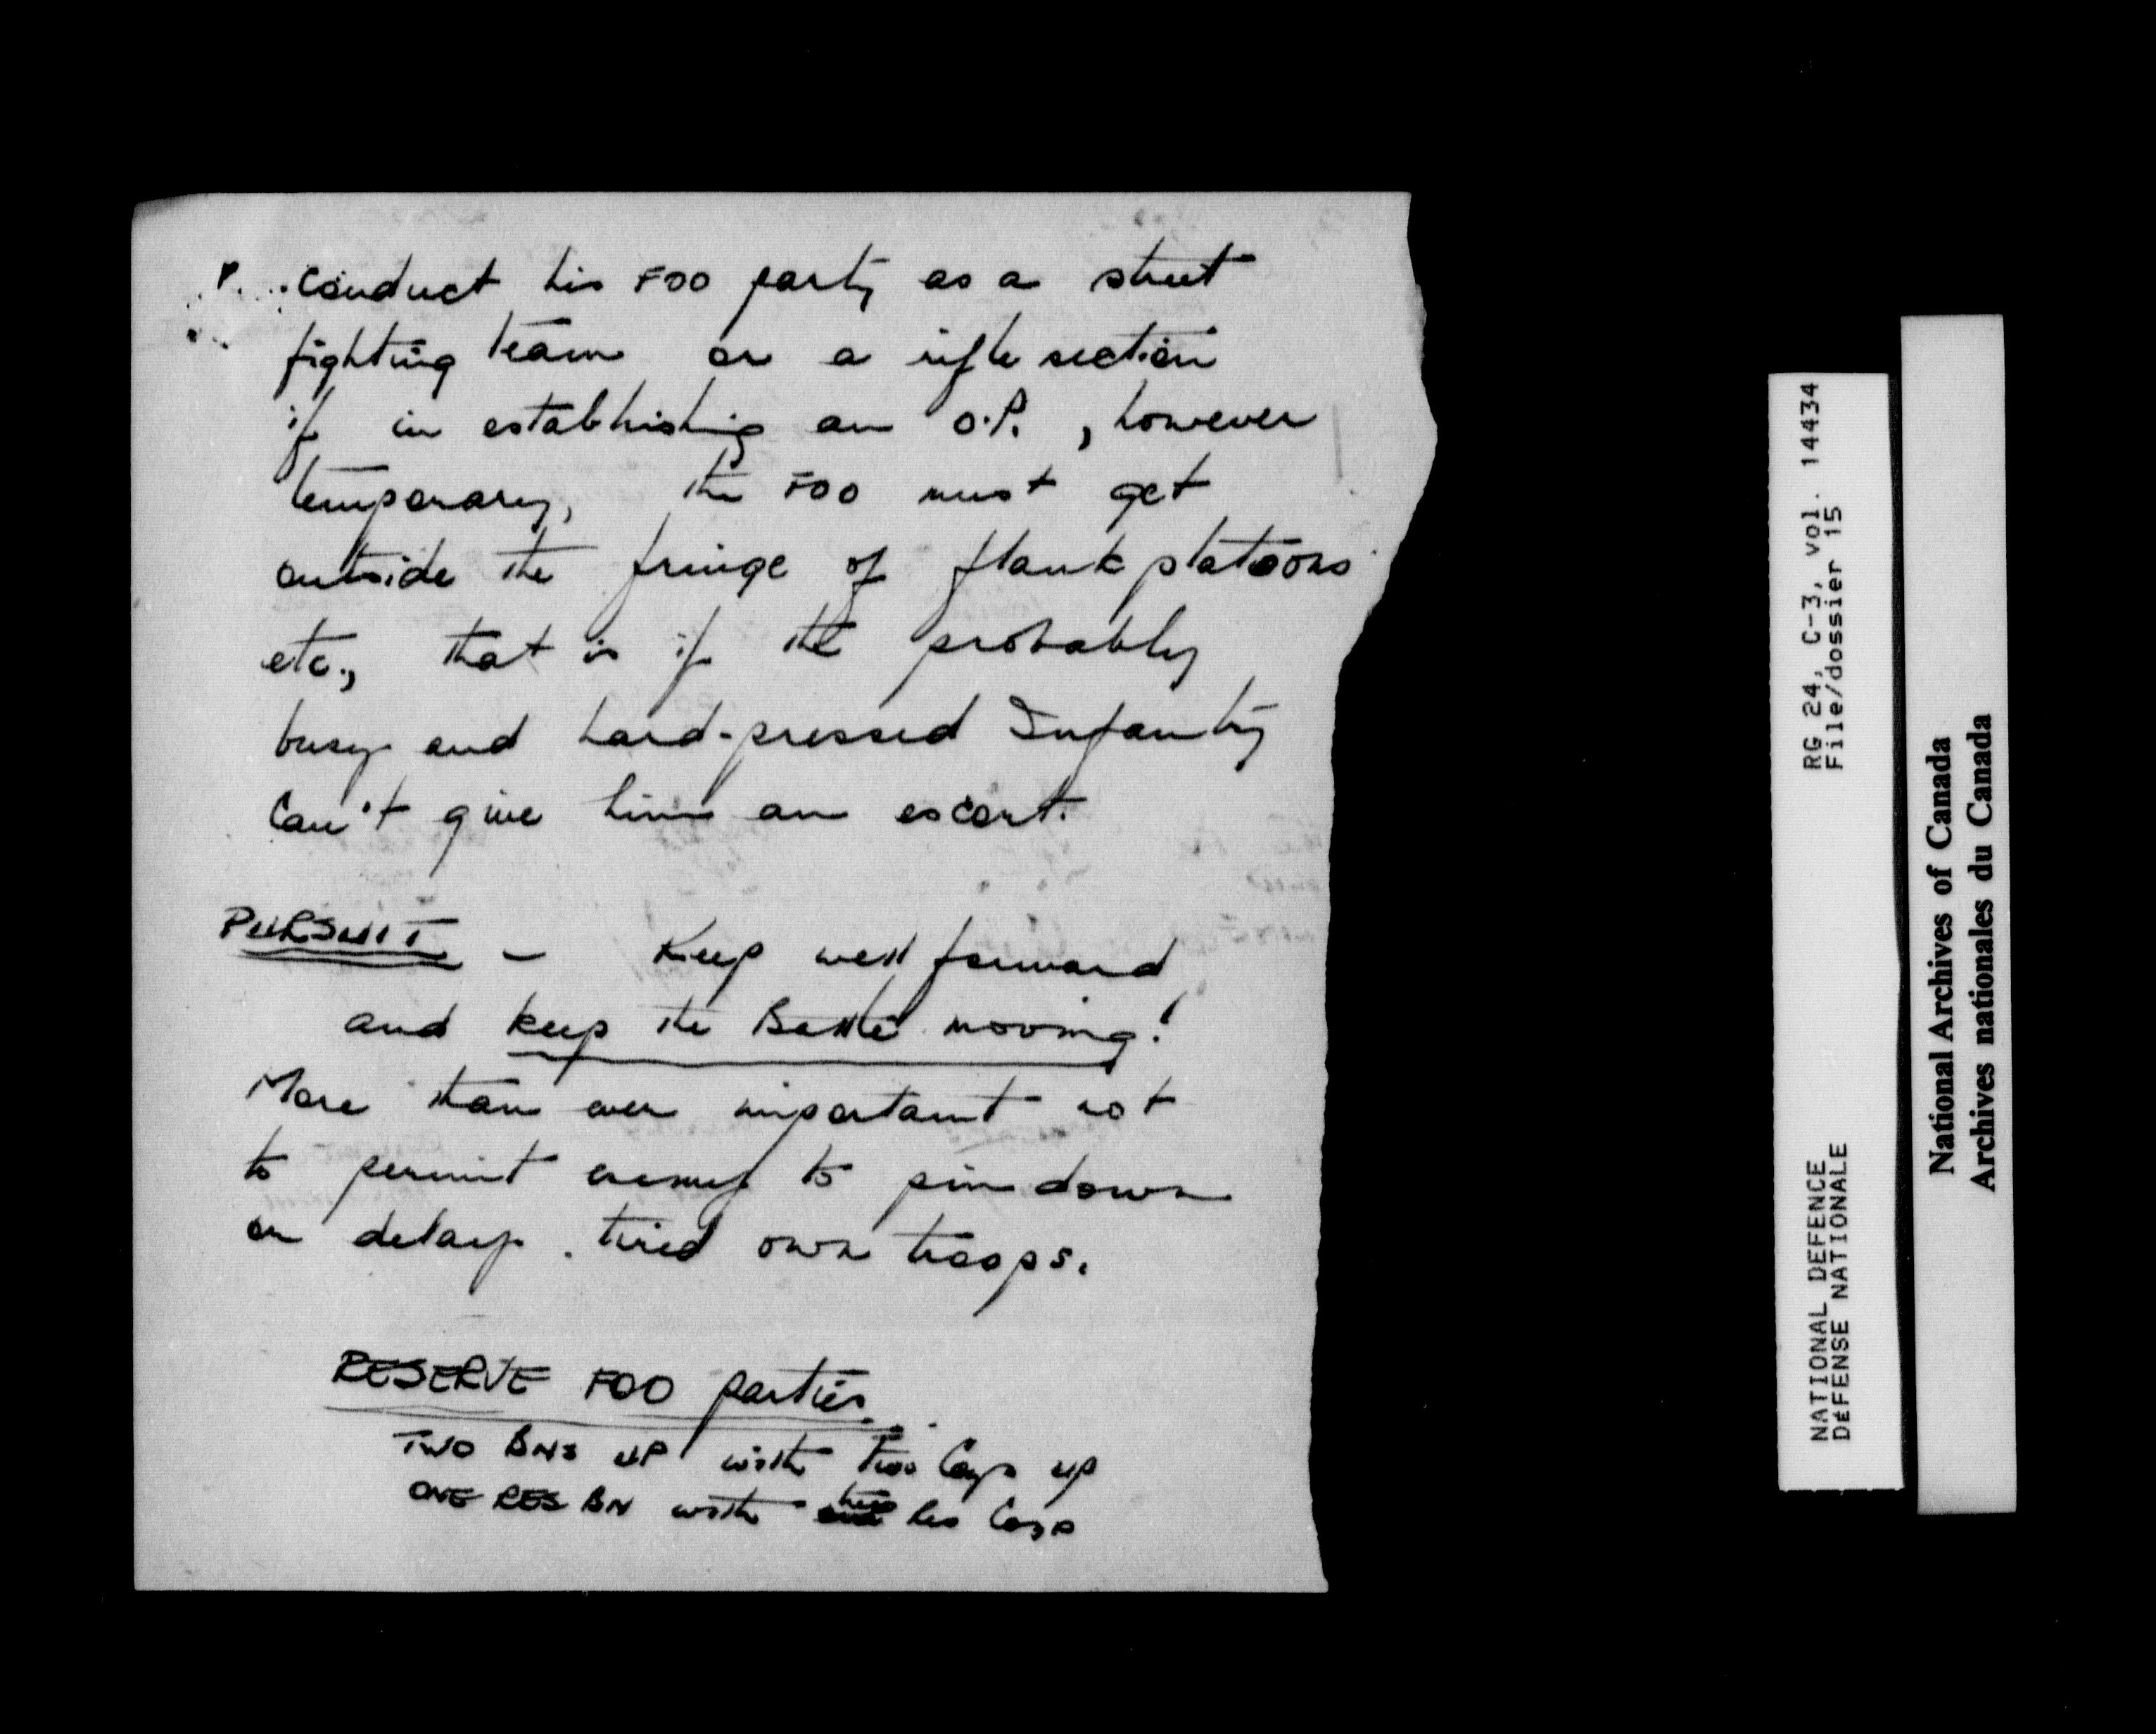 P. Conduct his FOO party as a street
fighting team or a rifle section
if in establishing an O.P., however
temporary, the FOO must get
outside the fringe of flank platoons
etc., that is if the probably
busy and hard-pressed Infantry
can't give him an escort.
PURSUIT - Keep well forward
and keep the Battle moving!
More than ever important not
to permit enemy to pin down
or delay tired own troops.
RESERVE FOO parties
TWO BNS UP with two Coys up
ONE RES BN with two Res Coys
RG 24, C-3, vol. 14434
File/dossier 15
NATIONAL DEFENCE
DÉFENSE NATIONALE
National Archives of Canada
Archives nationales du Canada